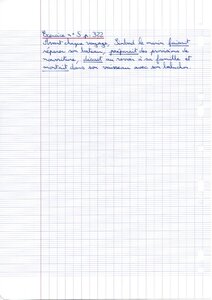 Exercice n° 5 p. 322
Avant chaque voyage, Sinbad le marin faisait
réparer son bateau, préparait des provisions de
nourriture, disait au revoir à sa famille et
montait dans son vaisseau avec son baluchon